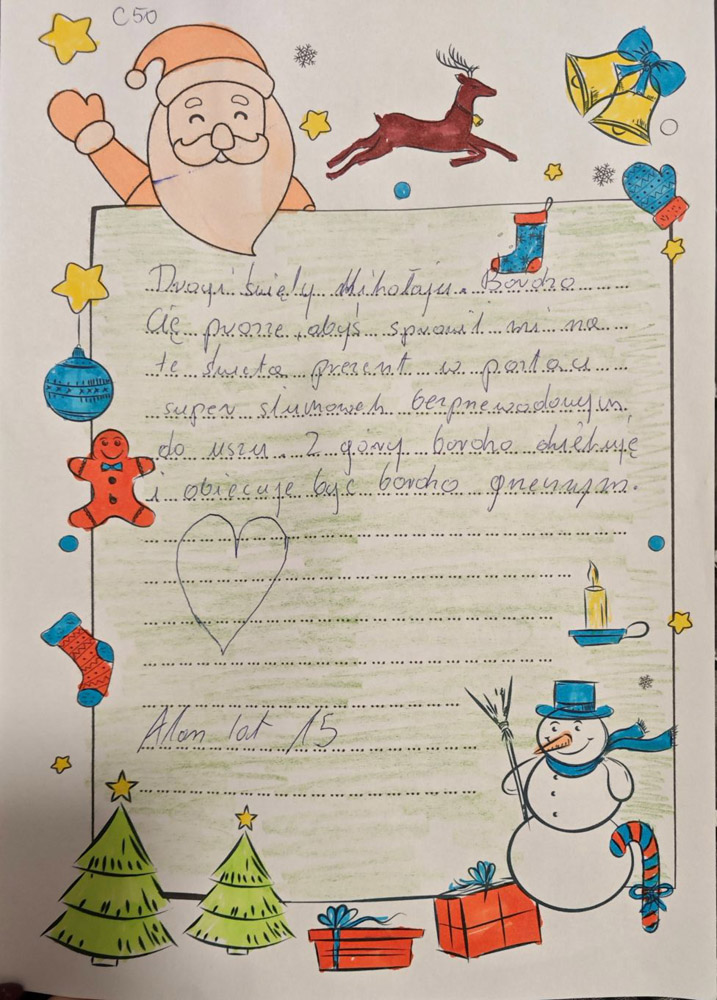 C50
Drogi święty Mikołaju. Bardzo
Cię proszę, abyś sprawił mi na
te święta prezent w postaci
super słuchawek bezprzewodowych
do uszu. Z góry bardzo dziękuję
i obiecuję być bardzo grzecznym.
Alan lat 15